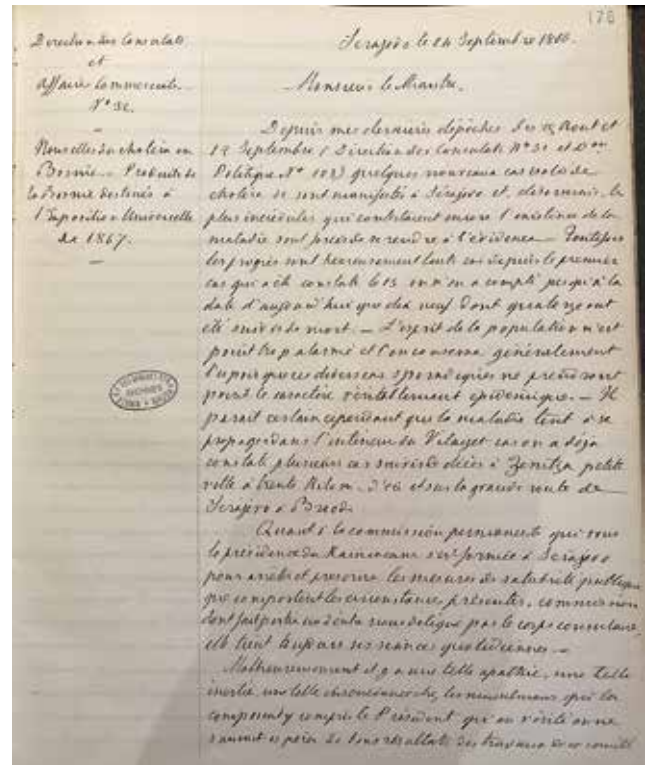 176
Direction des Consulats
et
Affaires Commerciales
N° 32.
Nouvelles du choléra en
Bosnie. - Produits de
la Bosnie destinés à
l'Exposition Universelle
de 1867.
Serajevo le 24 Septembre 1866.
Monsieur le Ministre,
Depuis mes dernières dépêches des Aout et
19 Septembre (Direction des Consulats N° 31 et Don
Politique N° 103) quelques nouveaux cas isolés de
choléra se sont manifestés à Sérajevo et, désormais, les
plus incrédules qui contestaient encore l'existence de la
maladie sont forcés de se rendre à l'évidence - Toutefois
les progrès sont heureusement lents car depuis le premier
cas qui a été constaté le 13 on n'en a compté jusqu'à la
date d'aujourd'hui que dix neuf dont quatorze ont
été suivis de mort. - L'esprit de la population n'est
point trop alarmé et l'on conserve généralement
l'espoir que ces divers cas sporadiques ne prendront
point le caractère véritablement épidémique. - Il
parait certain cependant que la maladie tend à se
propager dans l'intérieur du Vilayet car on a déjà
constaté plusieurs cas suivis de décès à Zenitza petite
ville à trente Kilom. d'ici et sur la grande route de
Serajevo à Brood.
Quant à la commission permanente qui sous
la présidence du Kaimacam s'est formée à Serajevo
pour arrêter et prescrire les mesures de salubrité publique
que comportent les circonstances présentes, commission
dont fait partie un délégué par le corps consulaire,
elle tient toujours ses séances quotidiennes. -
Malheureusement il y a une telle apathie, une telle
inertie, une telle chez les musulmans qui la
composent y compris le Président qu'en vérité on ne
saurait espérer de bons résultats des travaux de ce comité